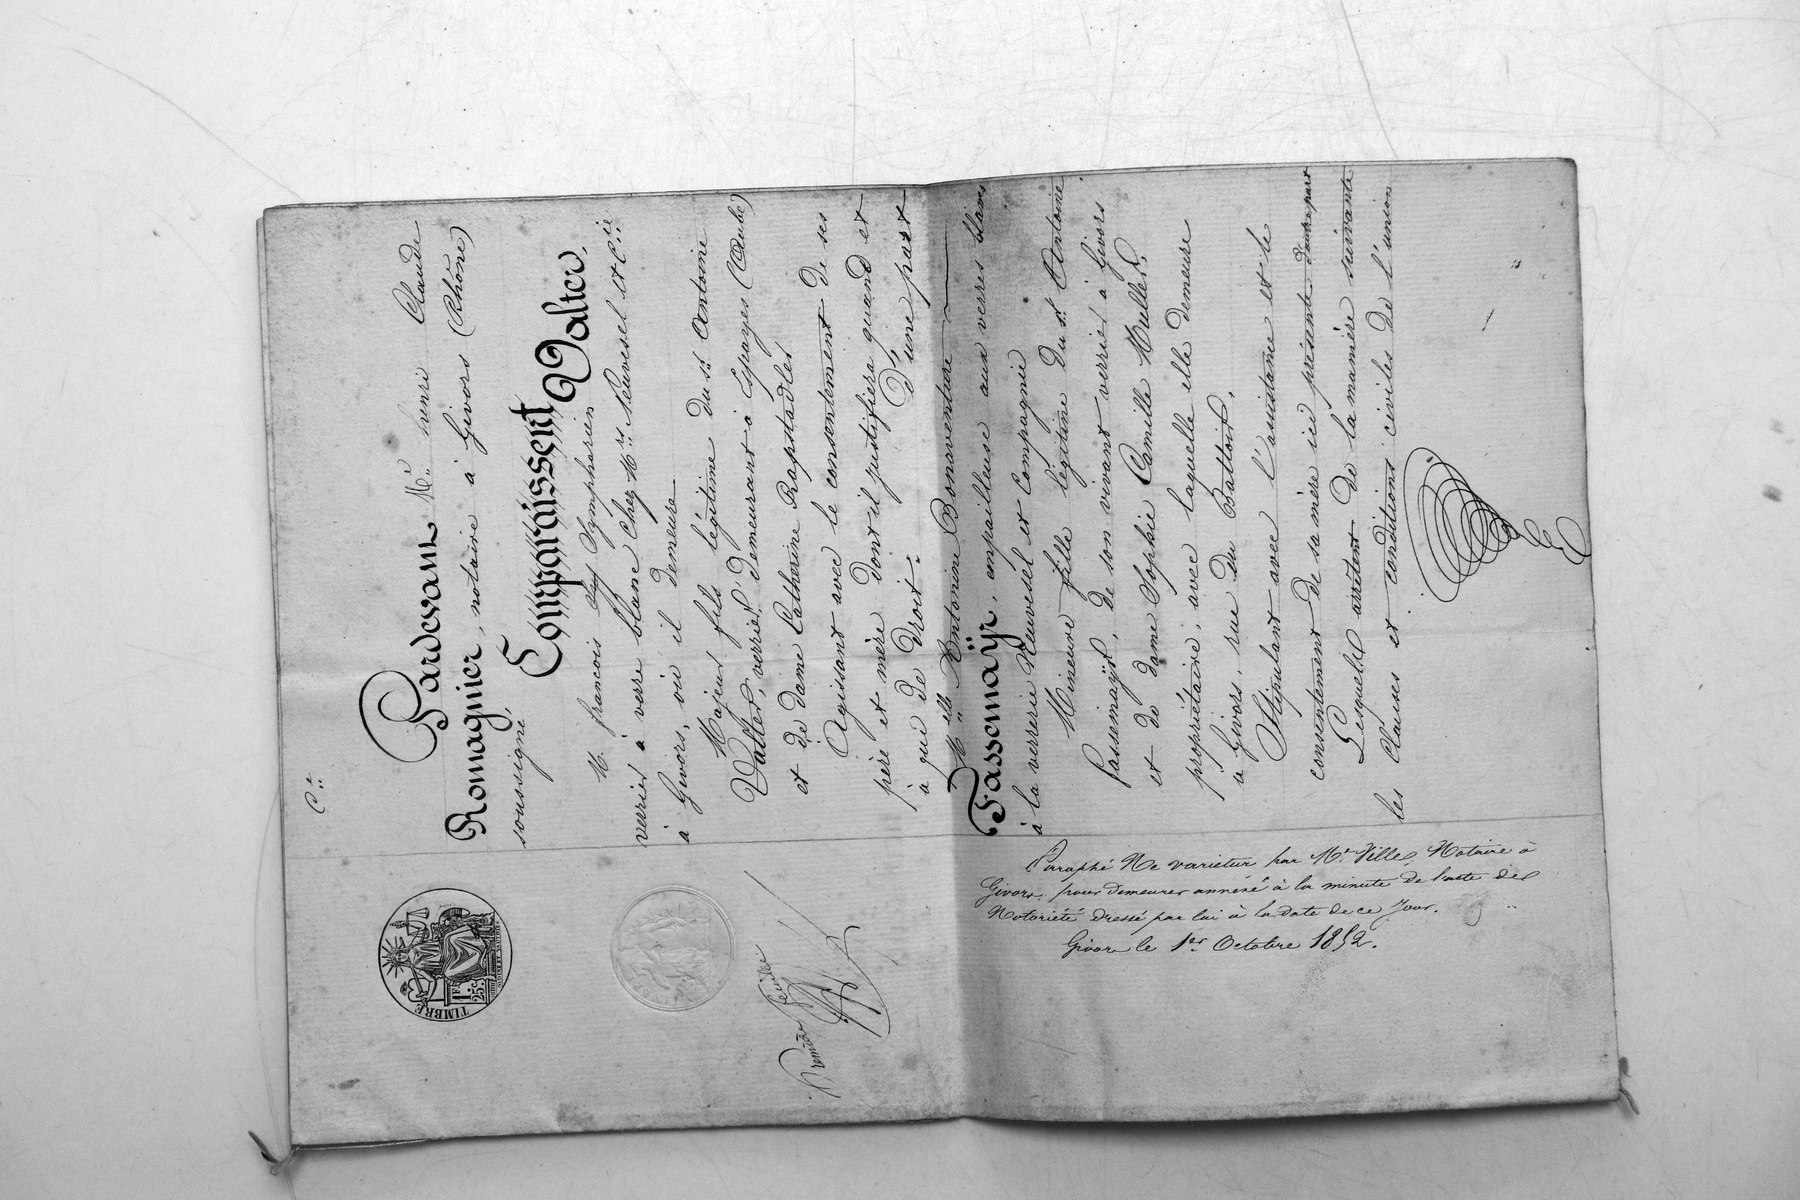 Cie
Pardevant Me henri Claude
Romagnier, notaire à Givors (Rhône)
soussigné,
Comparaissent
M. francois Symphorien Valter,
verrier à verre blanc chez Mrs Neuvesel et Cie
à Givors, où il demeure
Majeur fils légitime du sr Antoine
Valter, verrier, demeurant à Epoyes (Aube)
et de dame Catherine Rapstadler
Agissant avec le consentement de ses
père et mère dont il justifiera quand et
à qui de droit. D'une part
Melle Antonine Bonaventure
Passemaÿr, empailleuse aux verres blancs
à la verrerie Neuvesel et Compagnie
Mineure fille légitime du sr Antoine
Passemaÿr, de son vivant verrier à Givors
et de dame Sophie Camille Muller,
propriétaire, avec laquelle elle demeure
à Givors, rue du Battoir.
Stipulant avec l'assistance et le
consentement de sa mère ici présente d'autre part
Lesquels arrêtent de la manière suivante
les clauses et conditions civiles de l'union
TIMBRE
1F 25c
Première feuille
Paraphé Ne varietur par Me Ville, Notaire à
Givors, pour demeurer annexé à la minute de l'acte de
Notoriété dressé par lui à la date de ce Jour.
Givors le 1er Octobre 1892.